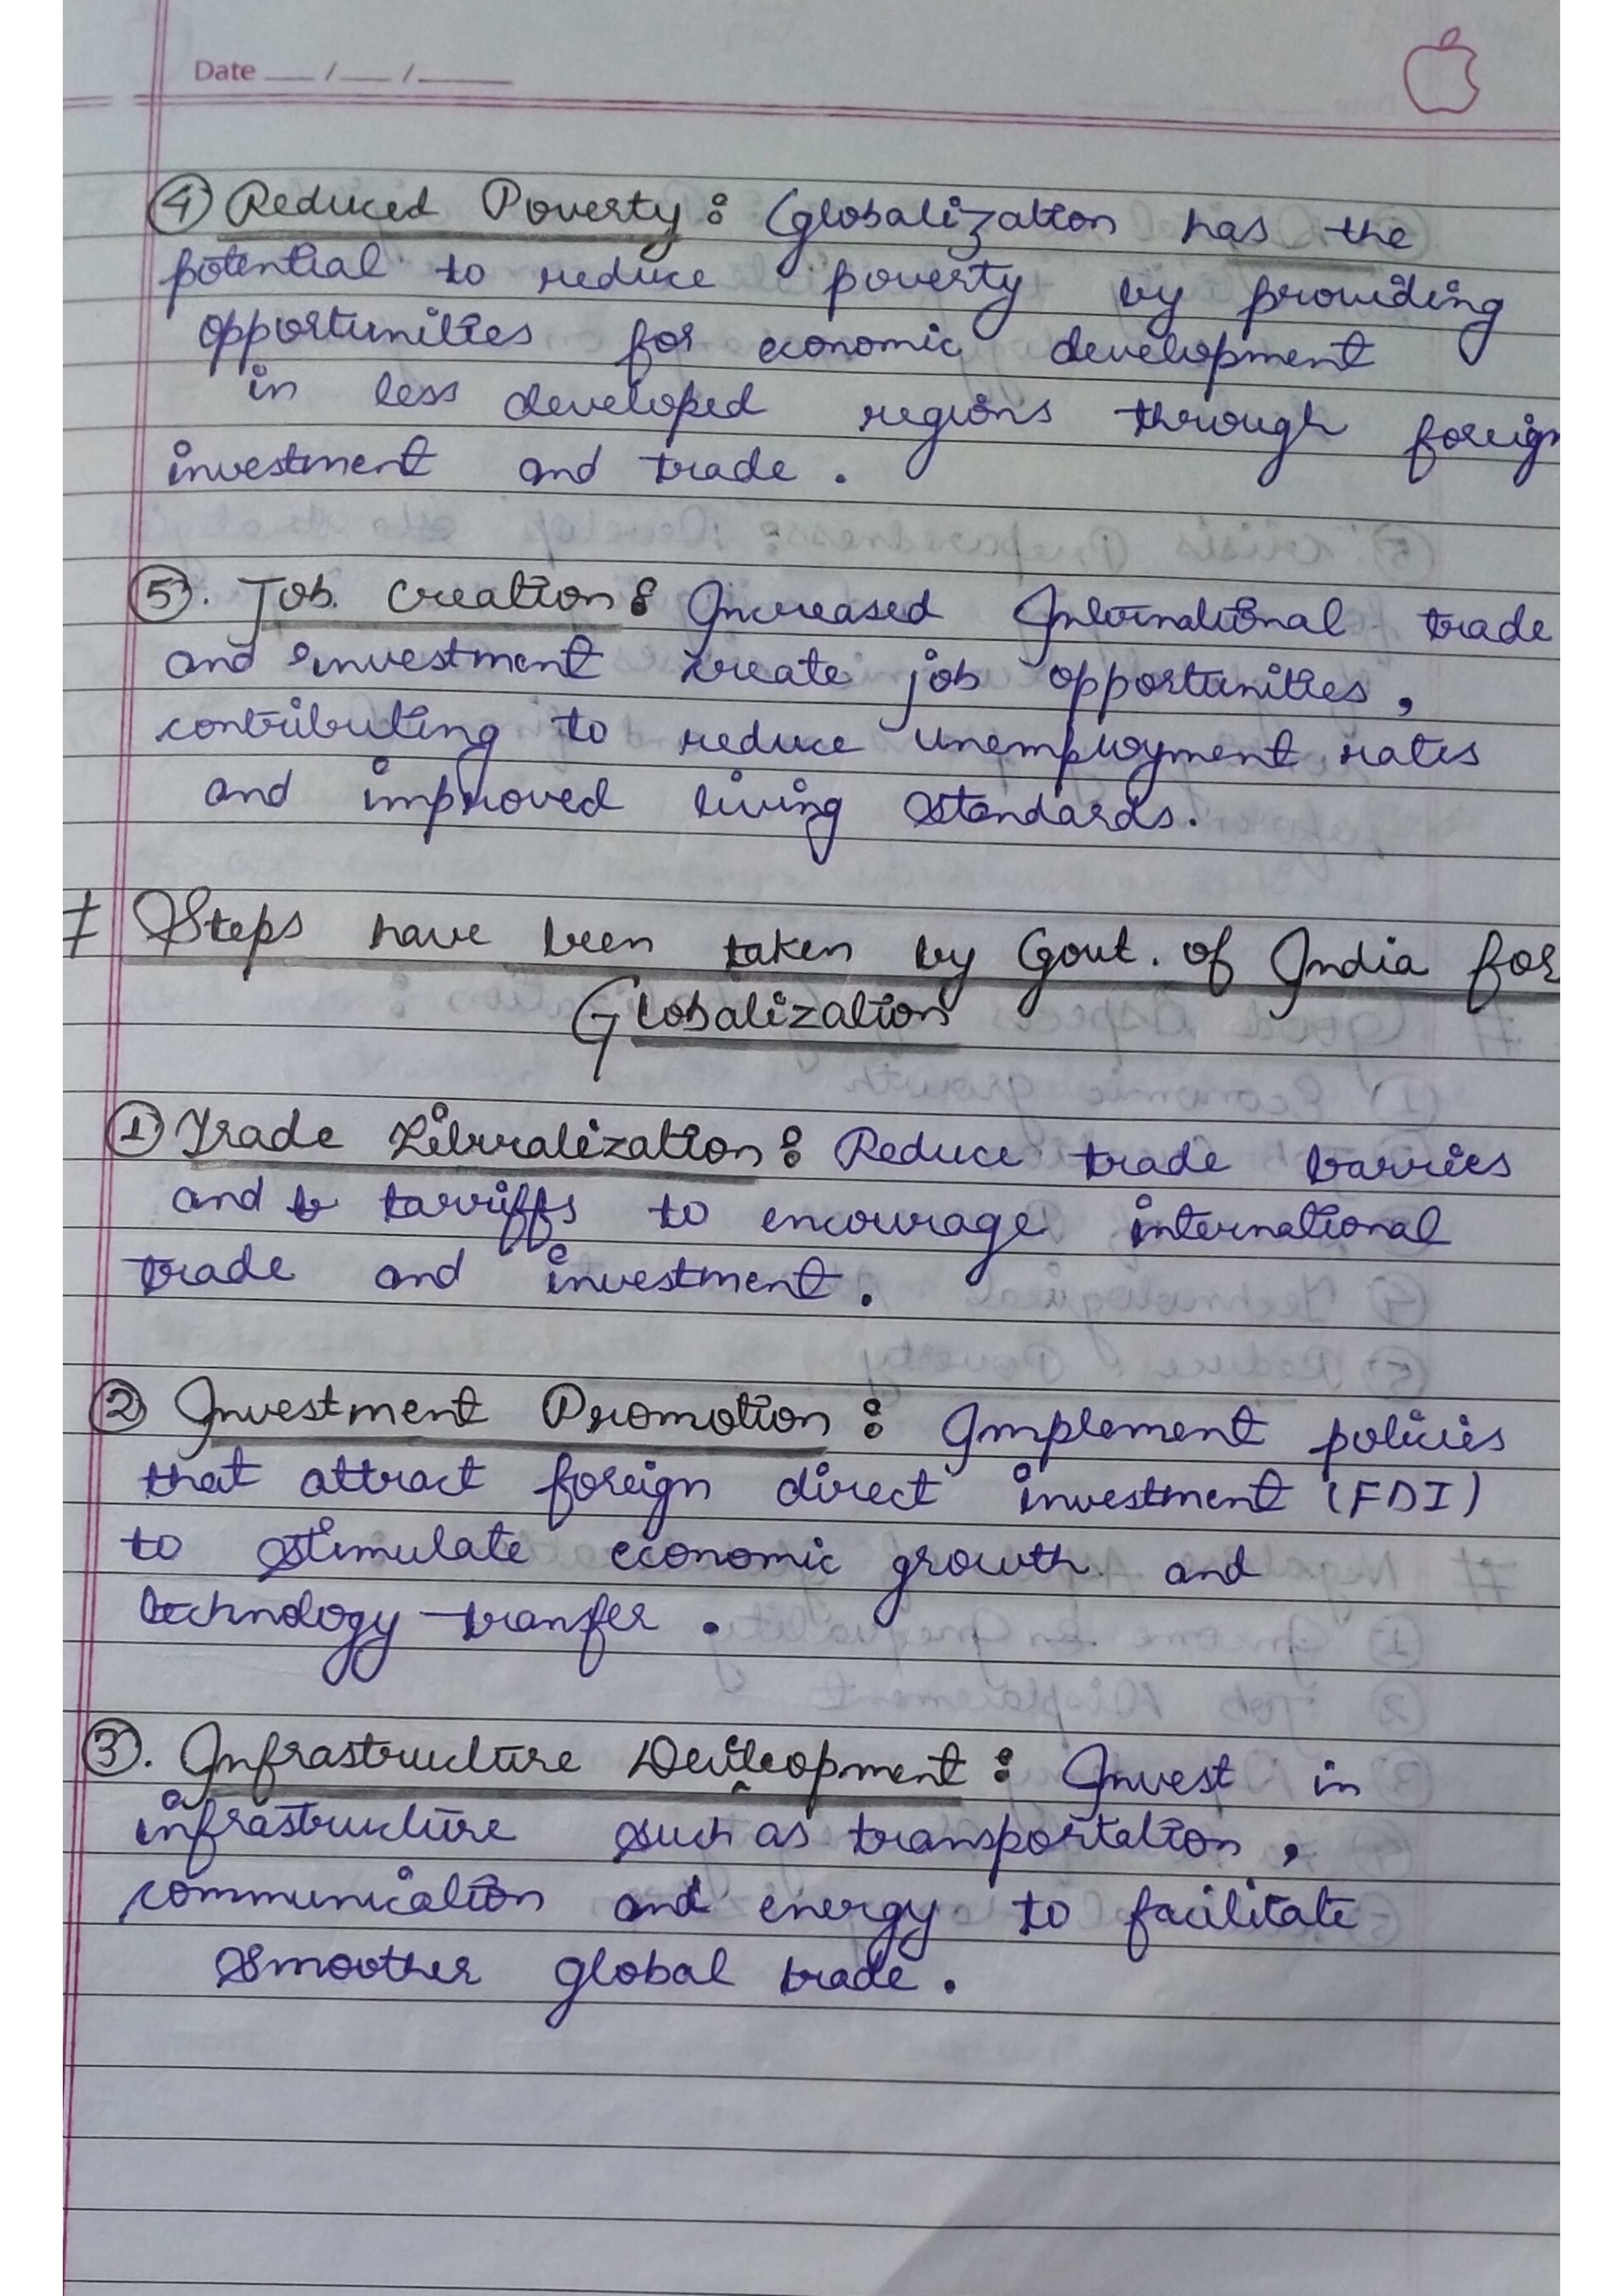 Date __/__/____
④ Reduced Poverty : Globalization has the
potential to reduce poverty by providing
opportunities for economic development
in less developed regions through foreign
investment and trade .
⑤. Job Creation : Increased International trade
and investment create job opportunities ,
contributing to reduce unemployment rates
and improved living standards.
# Steps have been taken by Govt. of India for
Globalization
① Trade Liberalization : Reduce trade barries
and tarriffs to encourage international
trade and investment .
② Investment Promotion : Implement policies
that attract foreign direct investment (FDI)
to stimulate economic growth and
technology transfer .
③. Infrastructure Development : Invest in
infrastructure such as transportation ,
communication and energy to facilitate
smoother global trade .